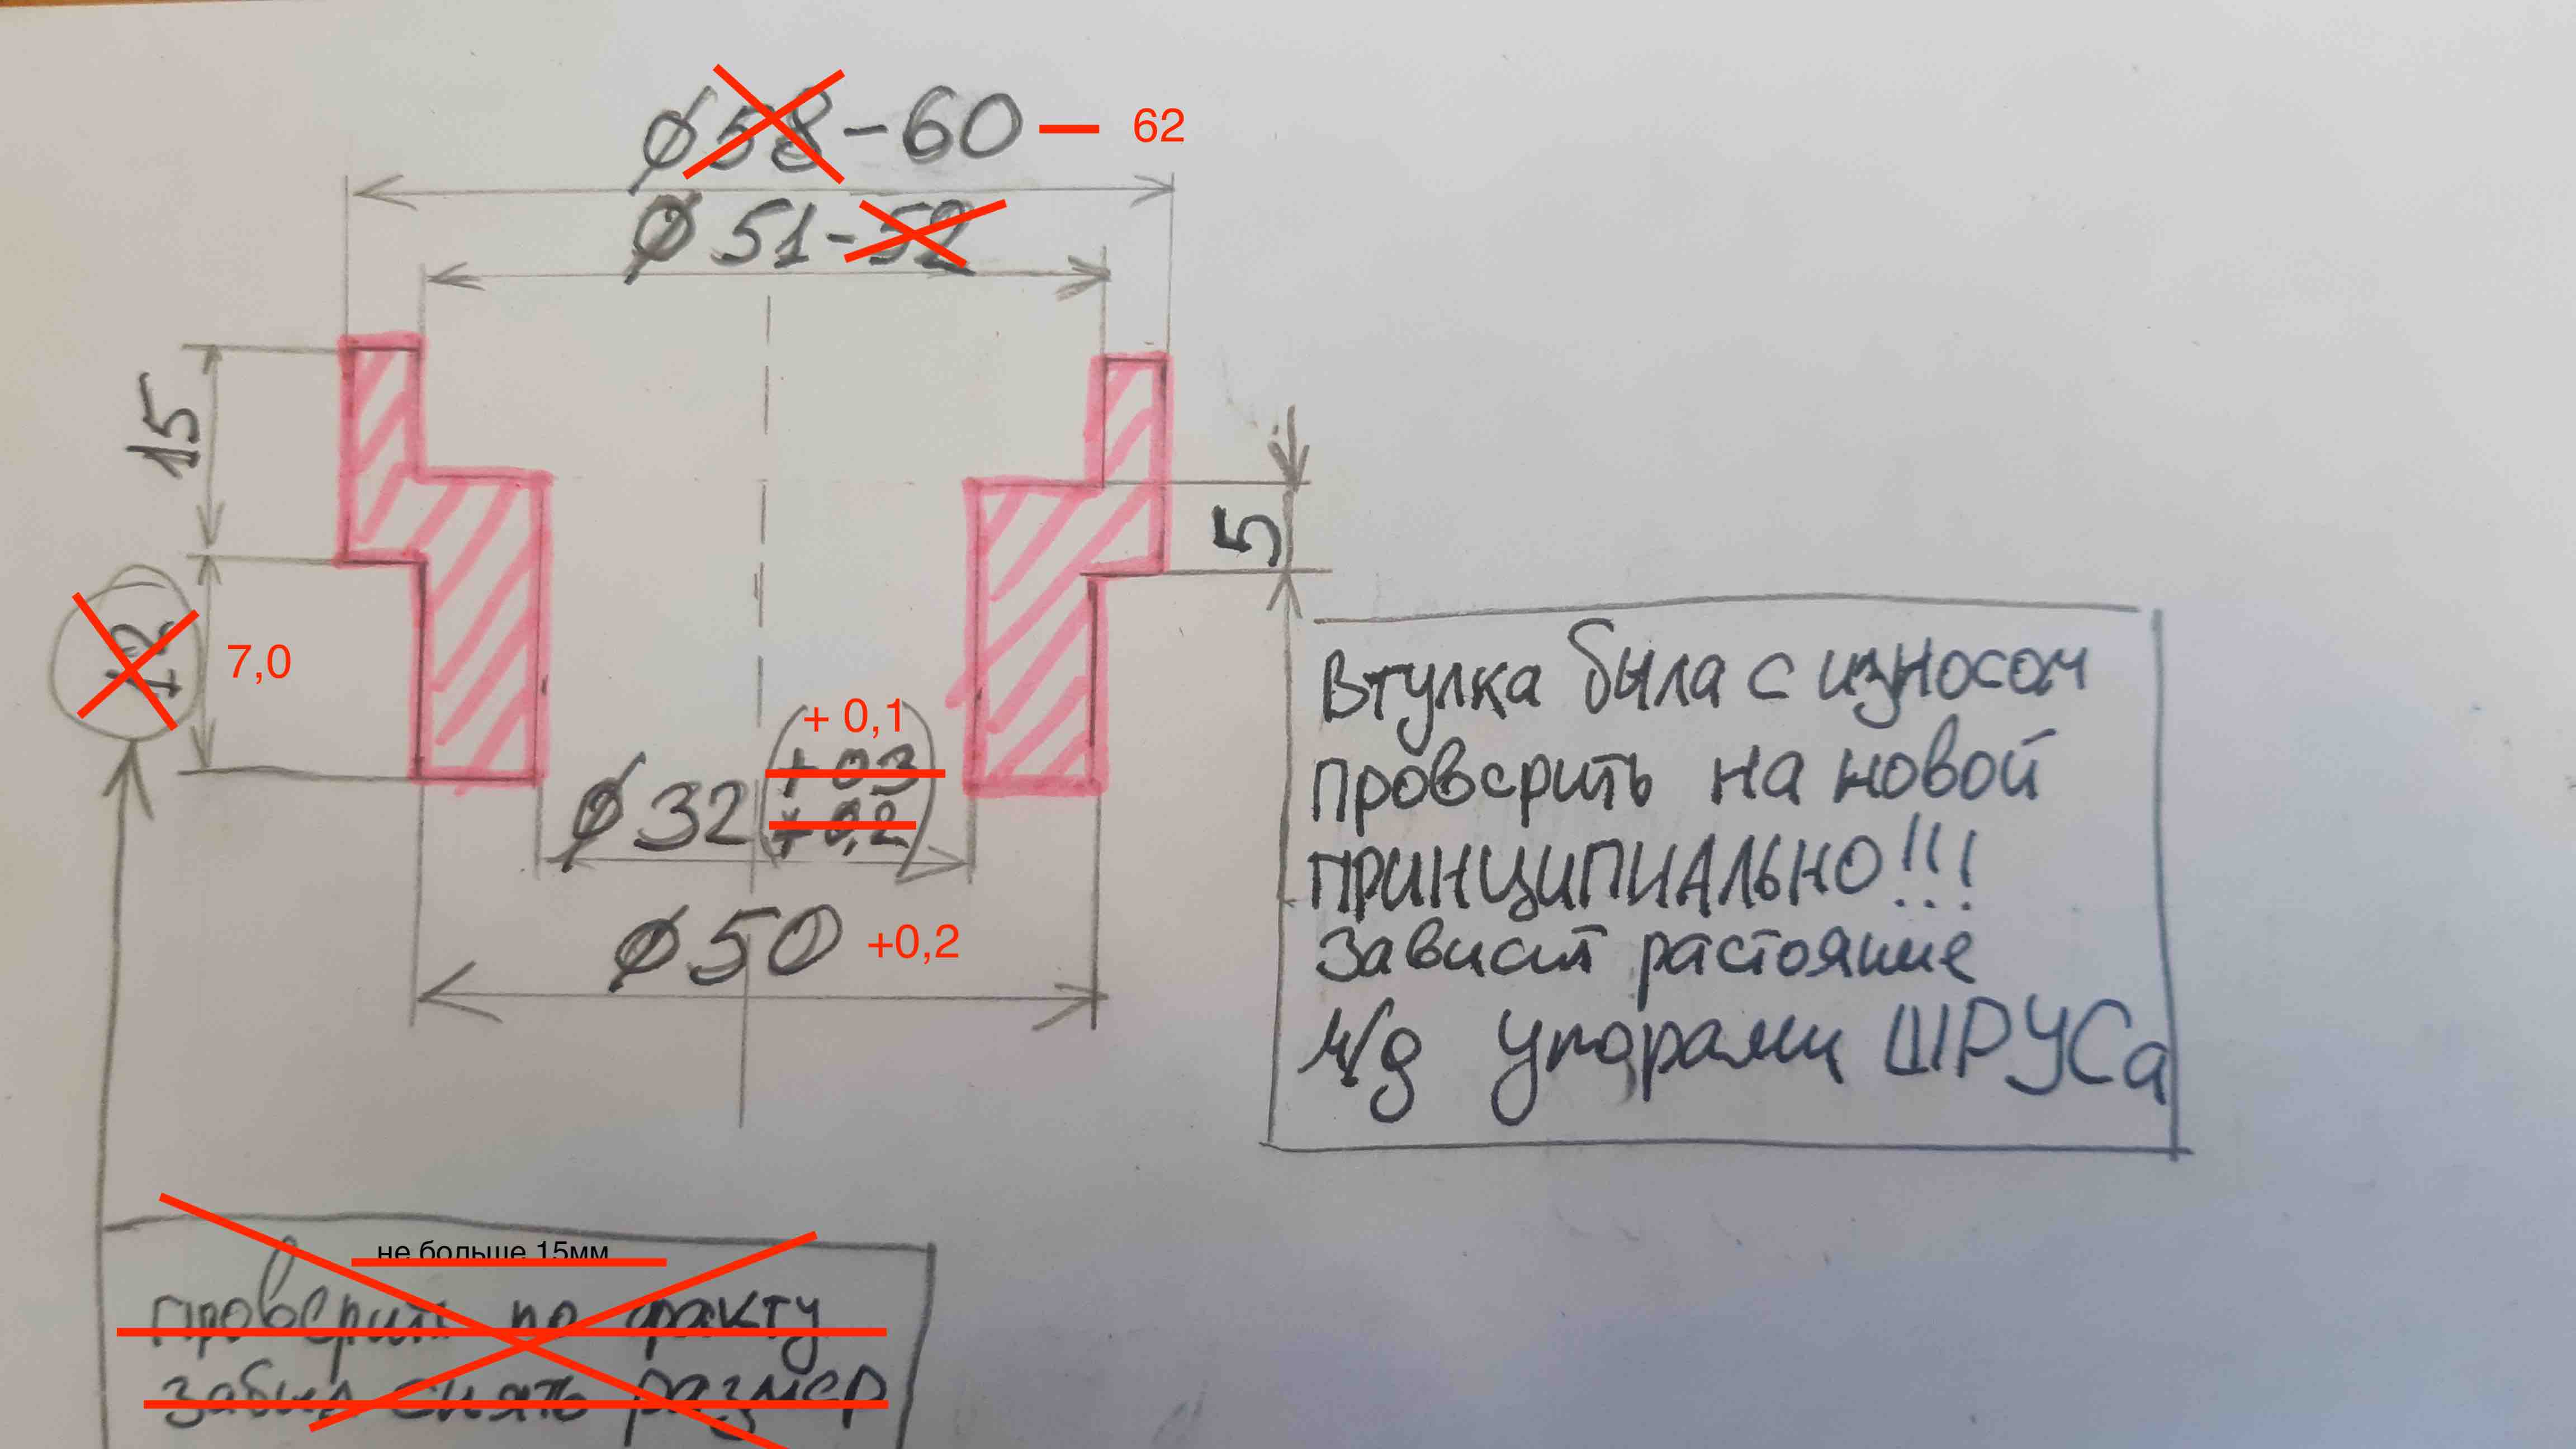 ⌀58-60 — 62
⌀51-52
15
5
12
7,0
+ 0,1
⌀32 (+0,3
+0,2)
⌀50 +0,2
Втулка была с износом
проверить на новой
ПРИНЦИПИАЛЬНО!!!
Зависит растояние
м/д упорами ШРУСа
не больше 15мм
проверить по факту
забыл снять размер